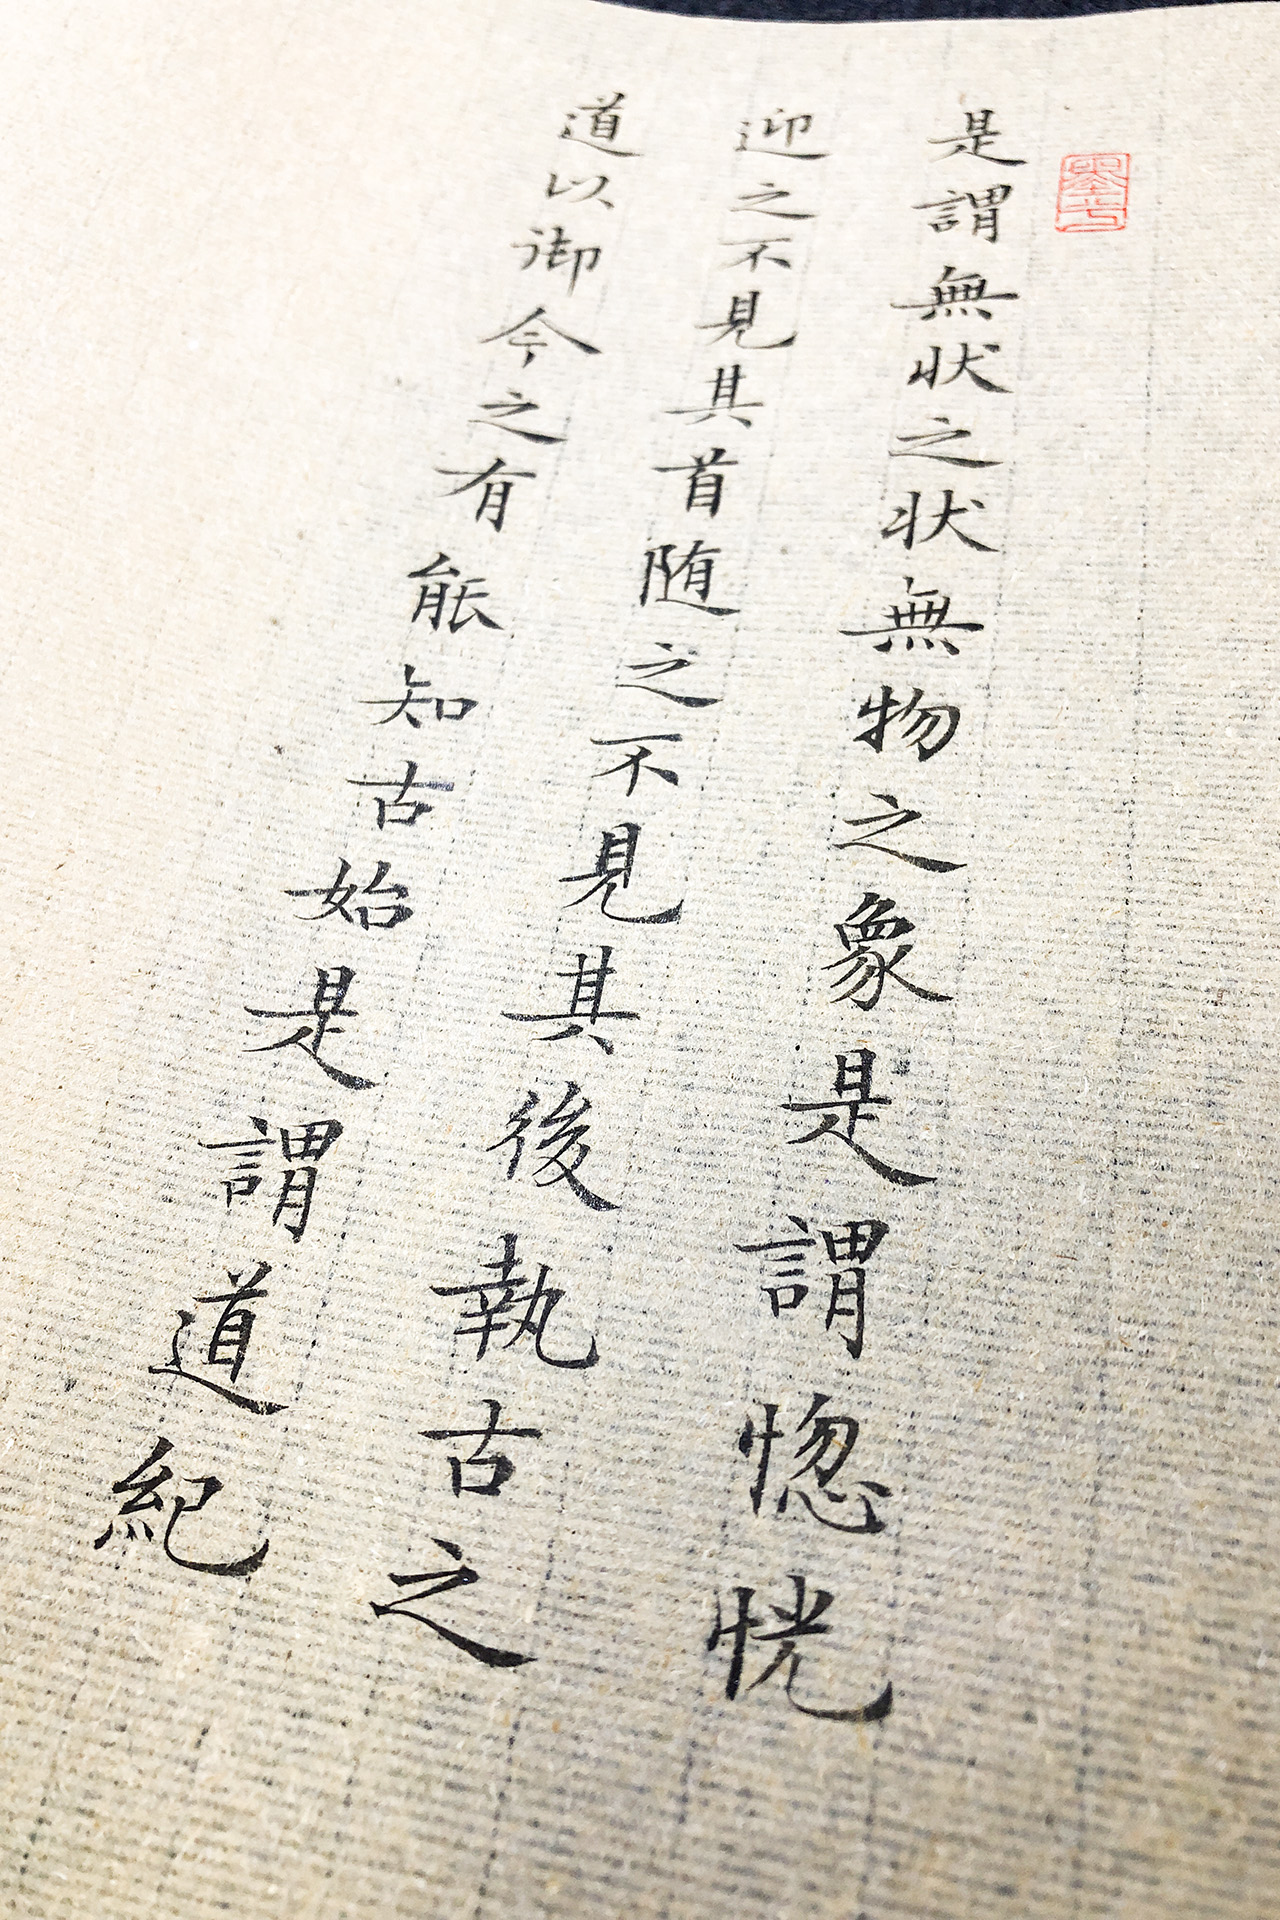 是謂無状之状無物之象是謂惚恍
迎之不見其首随之不見其後執古之
道以御今之有能知古始是謂道紀